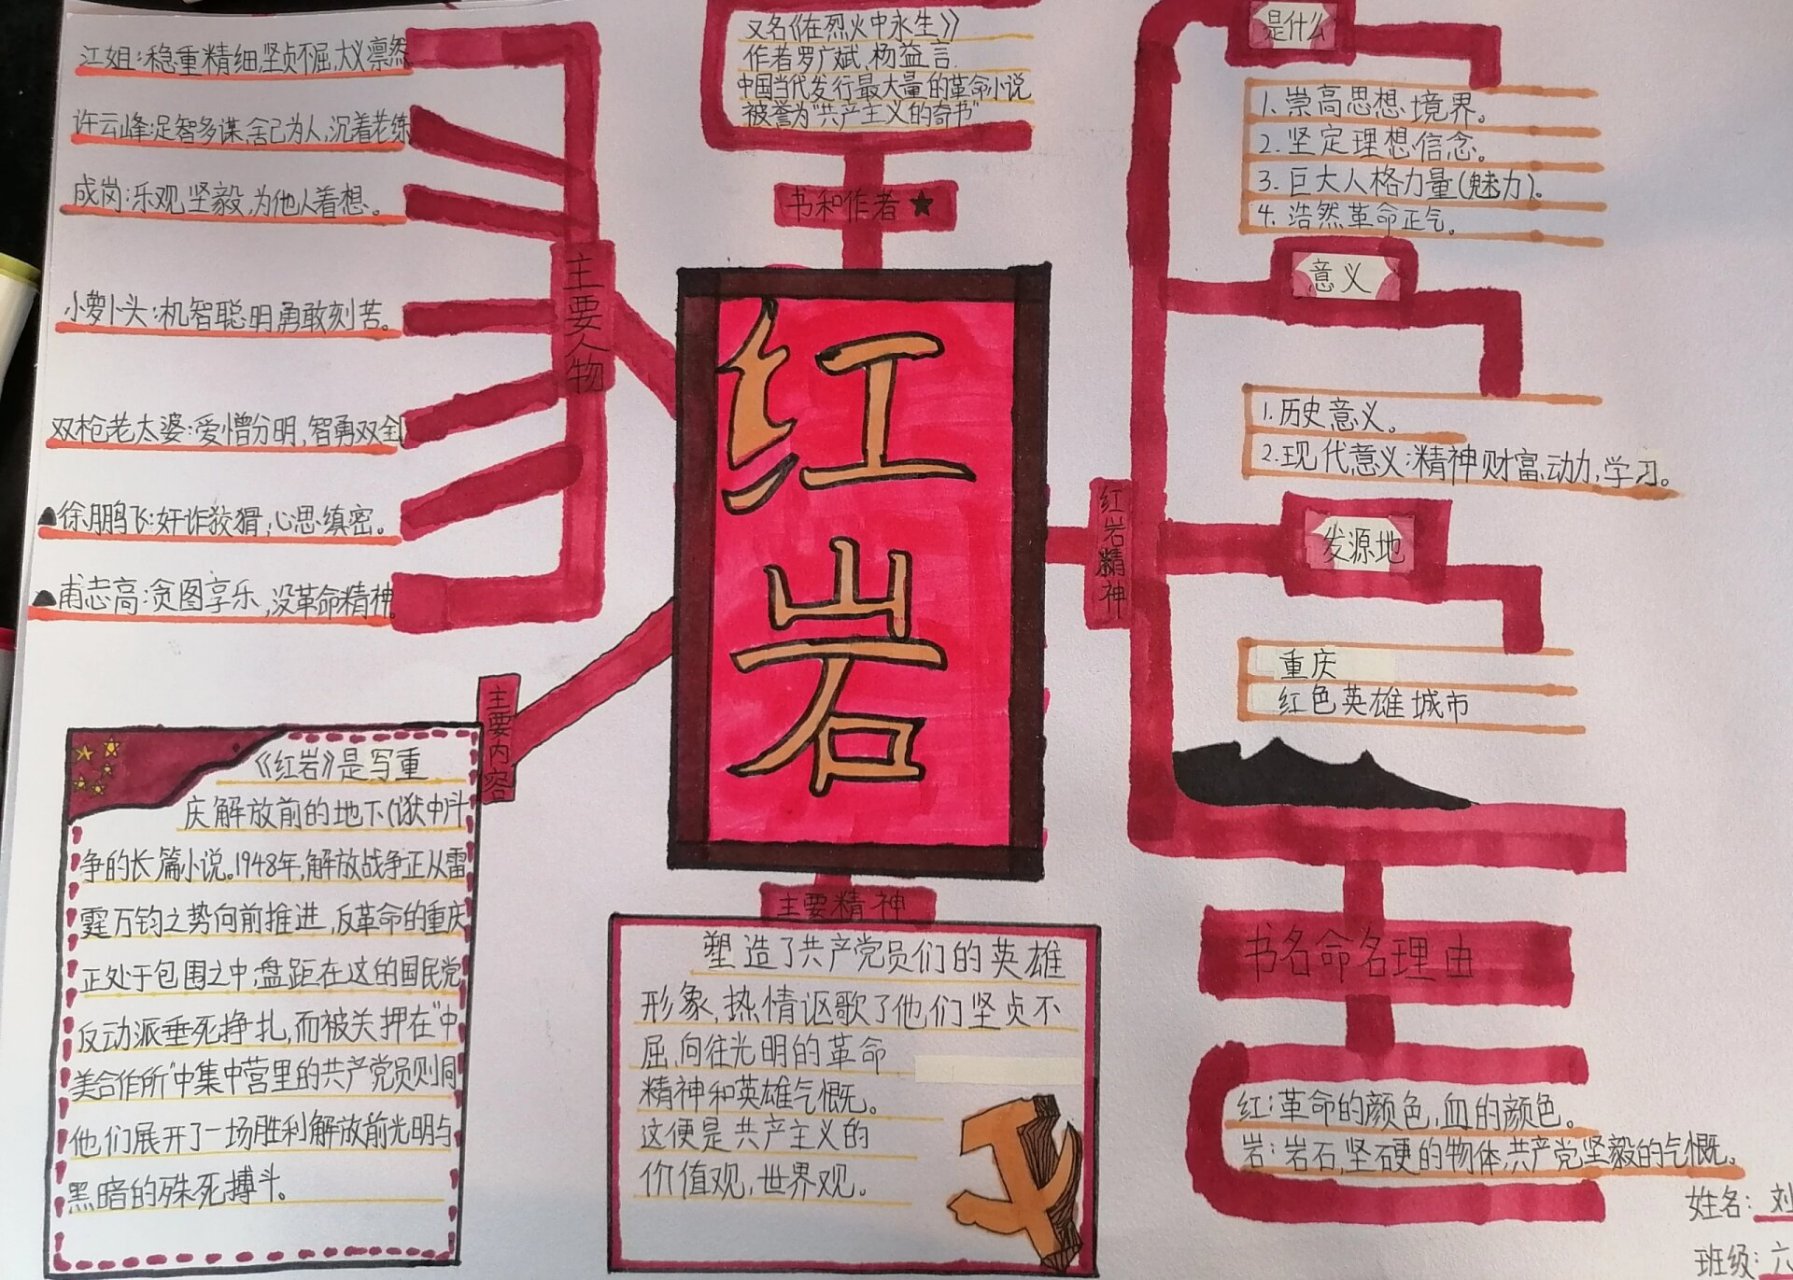 红岩
书和作者★
又名《在烈火中永生》
作者罗广斌,杨益言.
中国当代发行最大量的革命小说
被誉为"共产主义的奇书"
主要人物
江姐:稳重精细坚贞不屈,大义凛然
许云峰:足智多谋,舍己为人,沉着老练
成岗:乐观坚毅,为他人着想。
小萝卜头:机智聪明勇敢刻苦。
双枪老太婆:爱憎分明,智勇双全
▲徐鹏飞:奸诈狡猾,心思缜密。
▲甫志高:贪图享乐,没革命精神
主要内容
《红岩》是写重
庆解放前的地下(狱中)斗
争的长篇小说。1948年,解放战争正从雷
霆万钧之势向前推进,反革命的重庆
正处于包围之中,盘距在这的国民党
反动派垂死挣扎,而被关押在"中
美合作所"中集中营里的共产党员则同
他们展开了一场胜利解放前光明与
黑暗的殊死搏斗。
主要精神
塑造了共产党员们的英雄
形象,热情讴歌了他们坚贞不
屈,向往光明的革命
精神和英雄气慨。
这便是共产主义的
价值观,世界观。
红岩精神
是什么
1.崇高思想境界。
2.坚定理想信念。
3.巨大人格力量(魅力)。
4.浩然革命正气。
意义
1.历史意义。
2.现代意义:精神财富,动力,学习。
发源地
重庆
红色英雄城市
书名命名理由
红:革命的颜色,血的颜色。
岩:岩石,坚硬的物体,共产党坚毅的气慨。
姓名:刘
班级:六